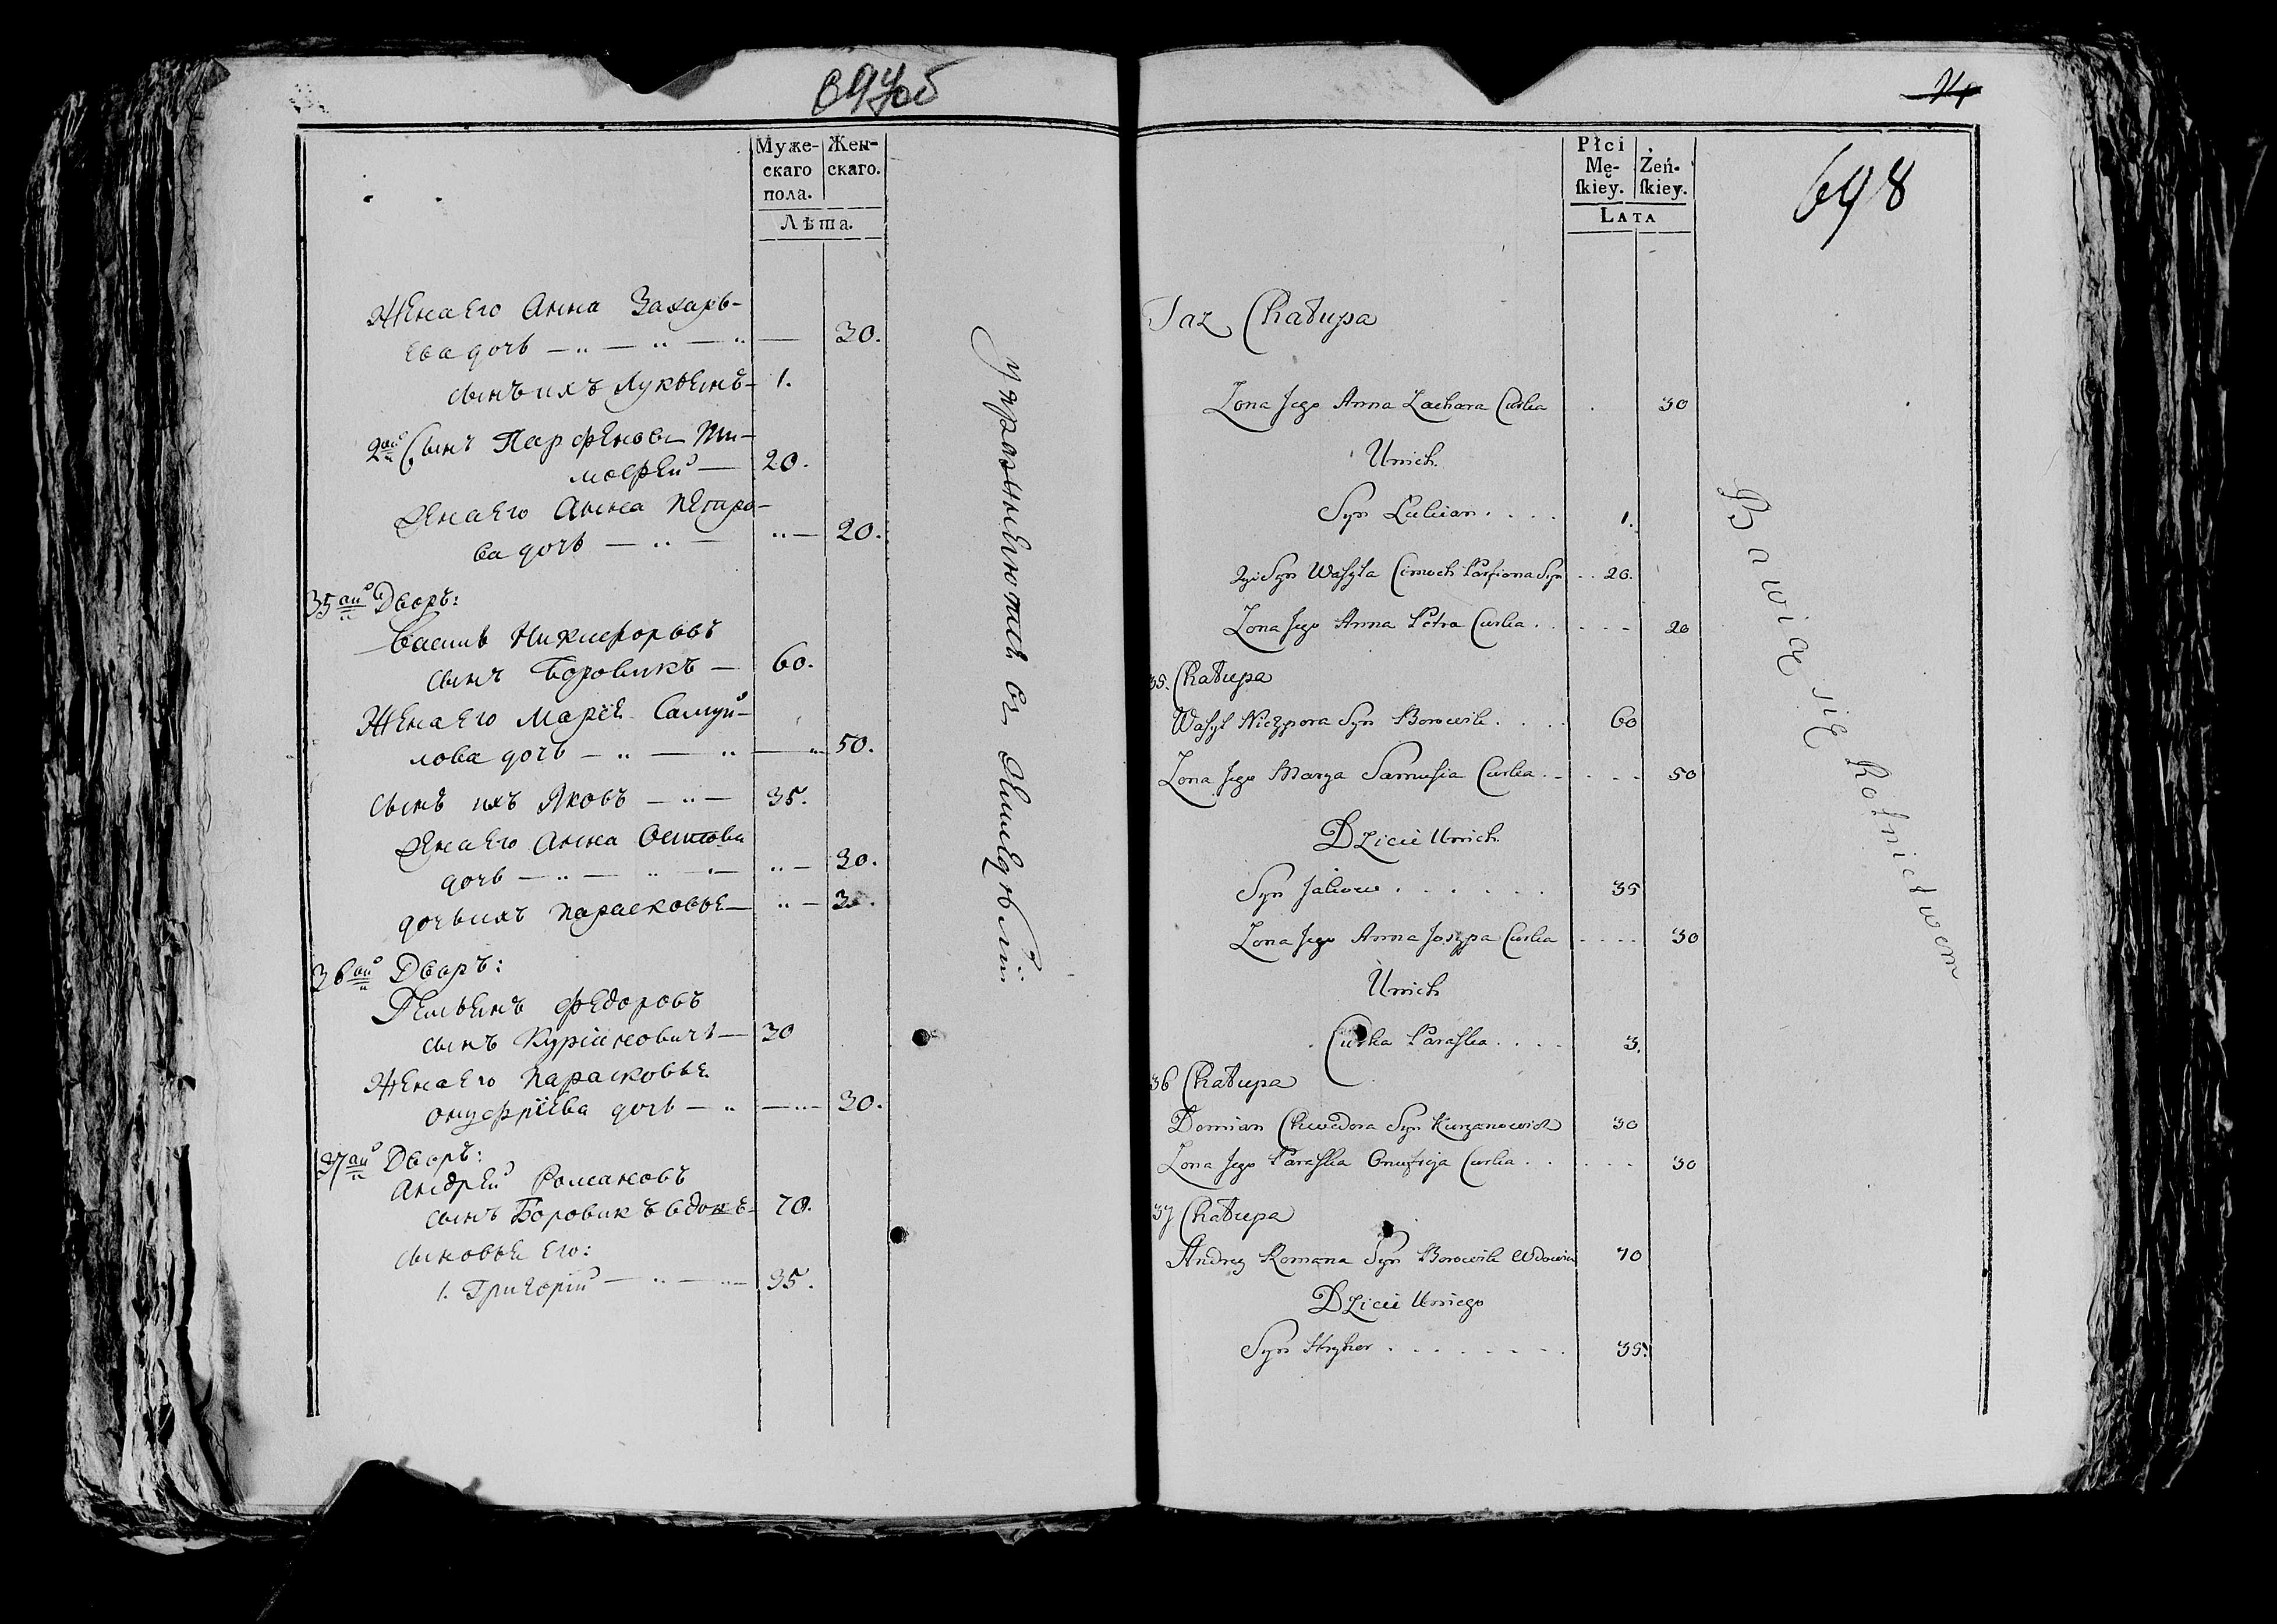 Муже-
скаго
пола.
Жен-
скаго.
Лѣта.
Жена Его Анна Захарь-
Ева дочь — „ — „ — „ — 30.
сынъ ихъ Лукьенъ — 1.
2ай Сынъ Парфеновъ Ти-
мофей — 20.
Жена Его Анна Петро-
ва дочь — „ — „ — 20.
35ай Дворъ:
Василь Никифоровъ
сынъ Боровикъ — 60.
Жена Его Маріе Самуй-
лова дочь — „ — „ — „ 50.
сынъ ихъ Яковъ — „ — 35.
Жена Его Анна
дочь — „ — „ — „ — 30.
дочь ихъ Парасковье — „ — 3.
36ай Дворъ:
Демьенъ Федоровъ
сынъ Куріановичъ — 30
Жена Его Парасковье
Онуфріева дочь — „ — „ — 30.
37ай Дворъ:
Андрей Романовъ
сынъ Боровикъ вдовъ — 70.
сыновье Его:
1. Григорій — „ — „ — 35.
упражнеются въ
698
Płci
Mę-
skiey.
Żeń-
skiey.
LATA
Taz Chałupa
Zona Jego Anna Zachara Curka . 30
Unich
Syn Lukian . . . . 1.
2gi Syn Wasyla Cimoch Parfiona Syn . . 20.
Zona Jego Anna Petra Curka . . . . 20
35. Chałupa
Wasyl Niczypora Syn Borowik . . . . 60
Zona Jego Marya Samusia Curka . . . . 50
Dzieci Unich
Syn Jakow . . . . . . 35
Zona Jego Anna Joszpa Curka . . . . 30
Unich
Curka Paraska . . . . 3.
36 Chałupa
Domian Chwedora Syn Kuryanowicz 30
Zona Jego Paraska Onufreja Curka . . . . . 30
37 Chałupa
Andrey Romana Syn Borowik Wdowiec 70
Dzieci Uniego
Syn Hryhor . . . . . . . 35.
Bawią się Rolnictwem